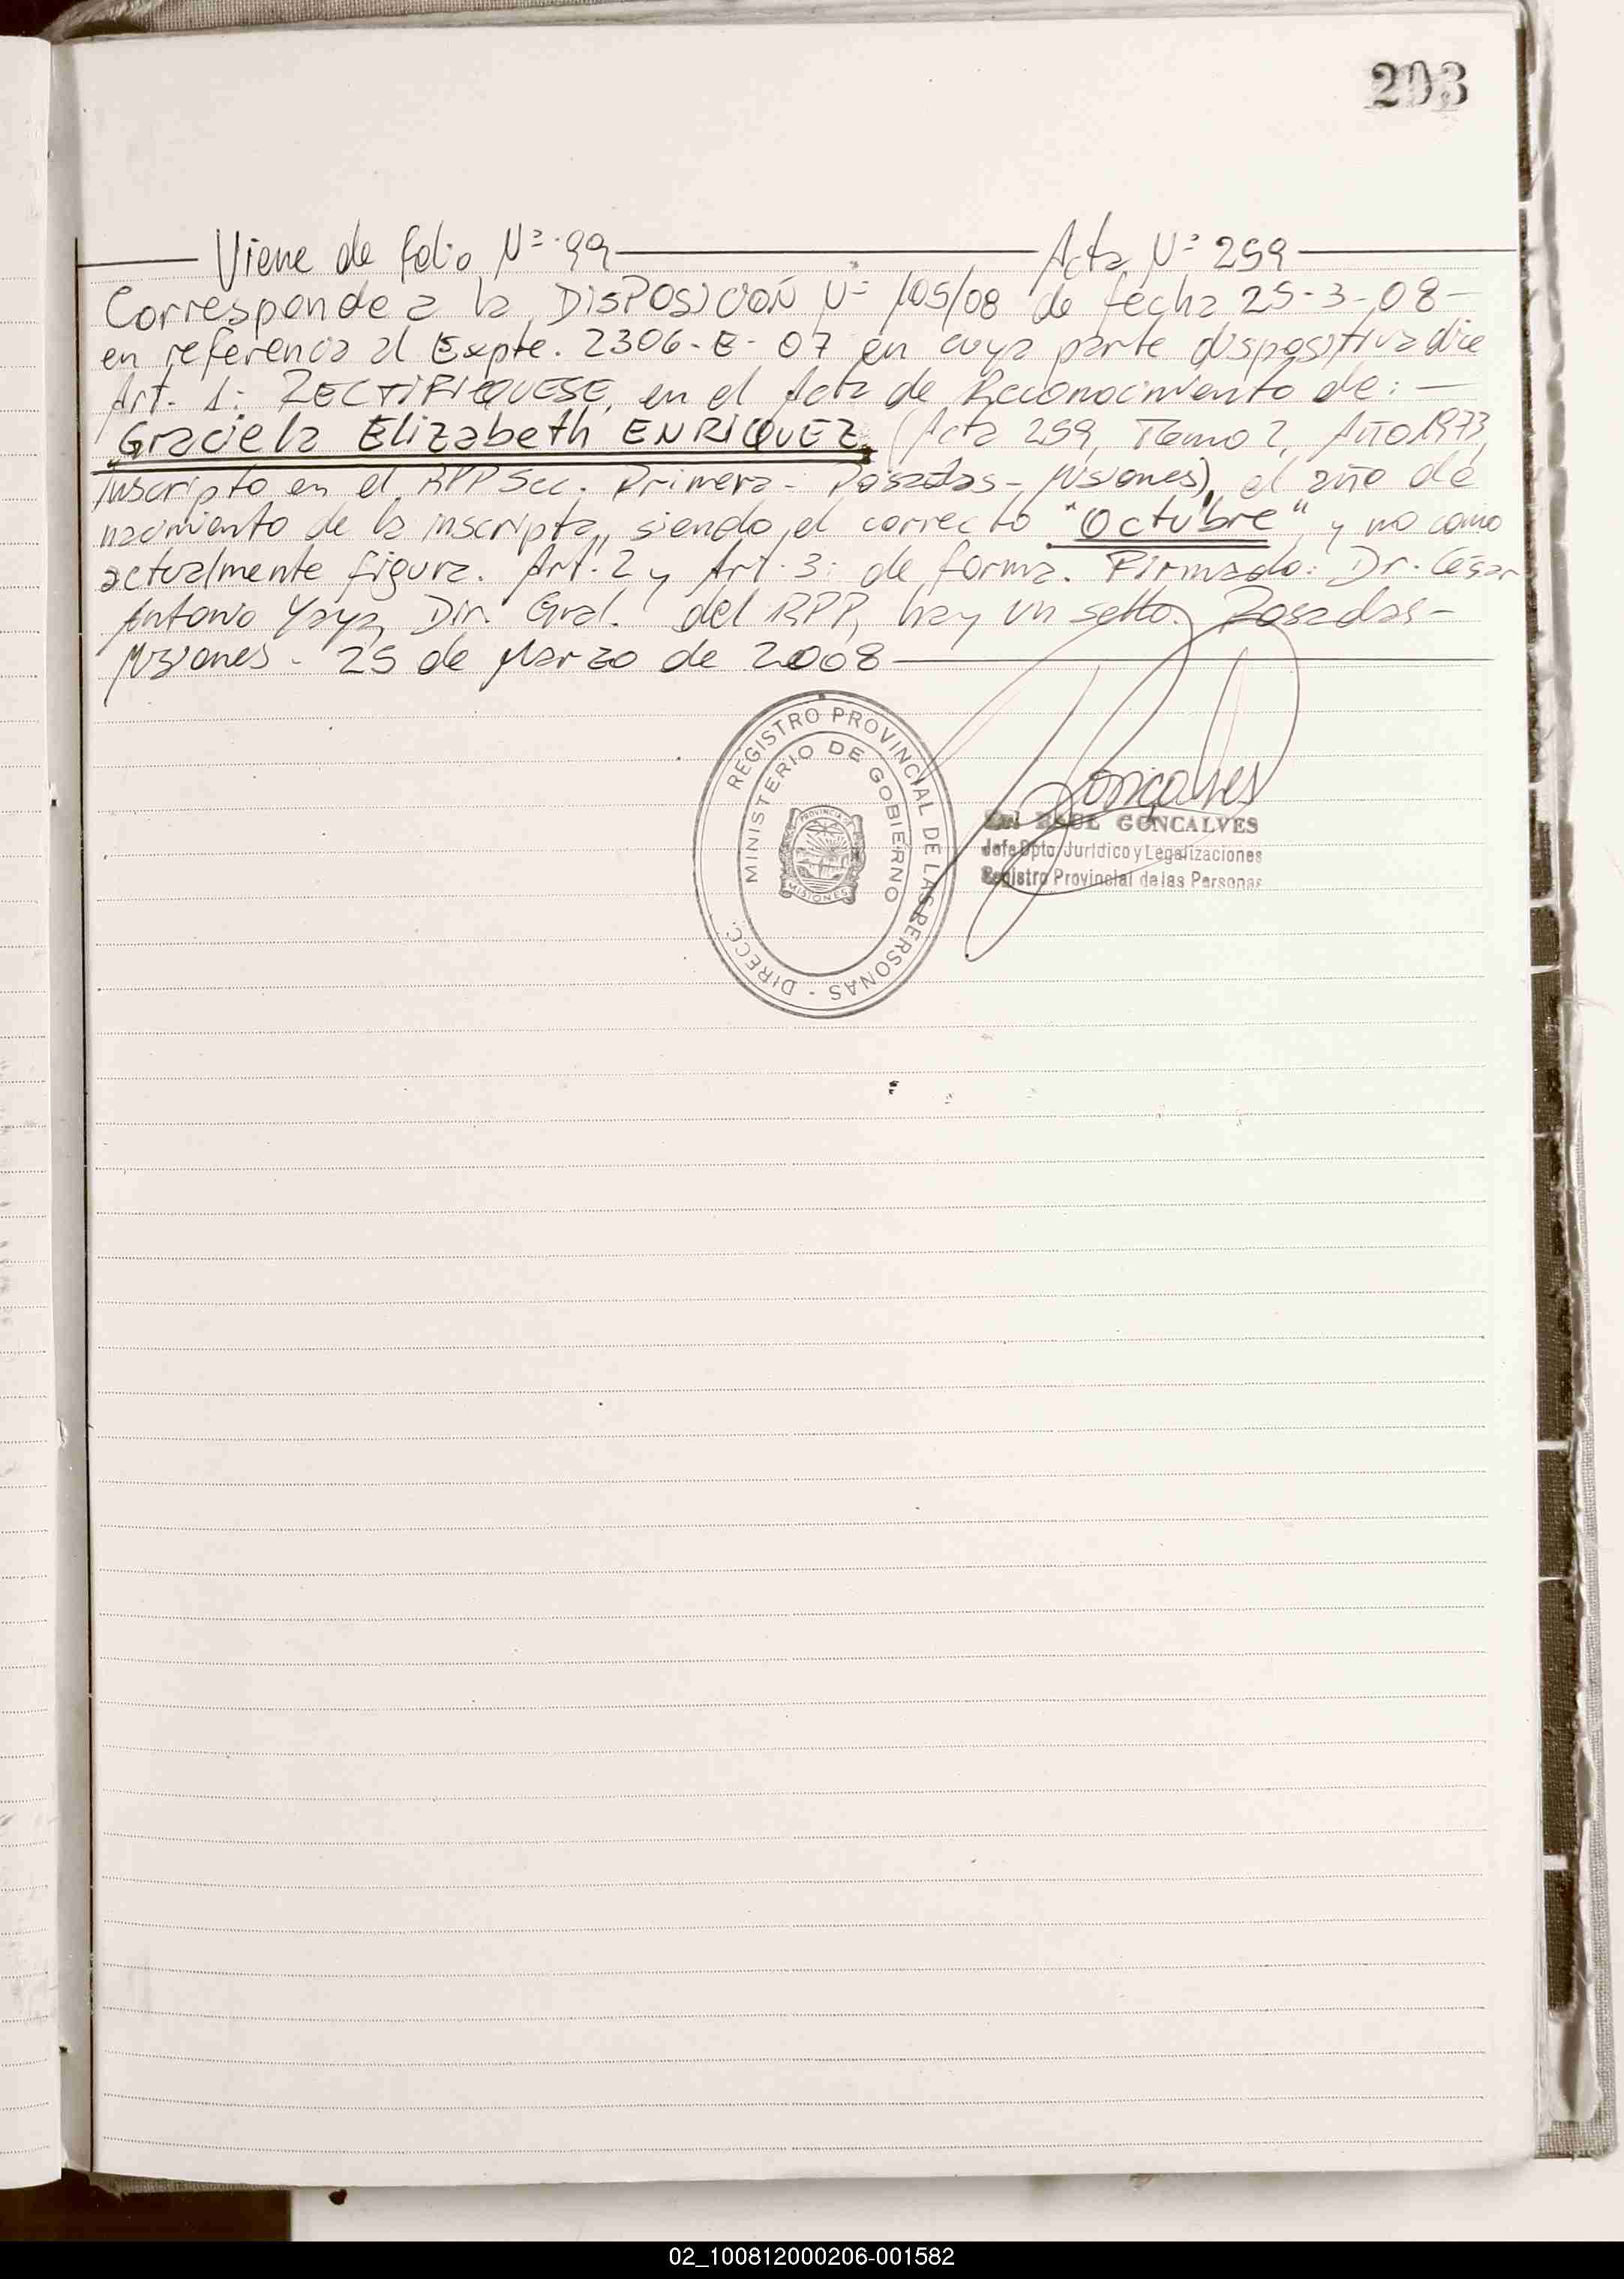 203
Viene de folio Nº 99 Acta Nº 259
Corresponde a la DISPOSICION Nº 105/08 de fecha 25-3-08-
en referencia al Expte. 2306-E-07 en cuya parte dispositiva dice
Art. 1: RECTIFIQUESE, en el Acta de Reconocimiento de:
Graciela Elizabeth ENRIQUEZ, (Acta 259, Tomo 2, Año 1973,
Inscripto en el RPP Sec. Primera- Posadas- Misiones), el año de
nacimiento de la inscripta, siendo el correcto "Octubre" y no como
actualmente figura. Art. 2 y Art. 3: de forma. Firmado: Dr. César
Antonio Yaya, Dir. Gral. del RPP, hay un sello. Posadas-
Misiones- 25 de Marzo de 2008
REGISTRO PROVINCIAL DE LAS PERSONAS - DIRECC.
MINISTERIO DE GOBIERNO
PROVINCIA DE
MISIONES
Goncalves
GONCALVES
Jefe Dpto. Jurídico y Legalizaciones
Registro Provincial de las Personas
02_100812000206-001582